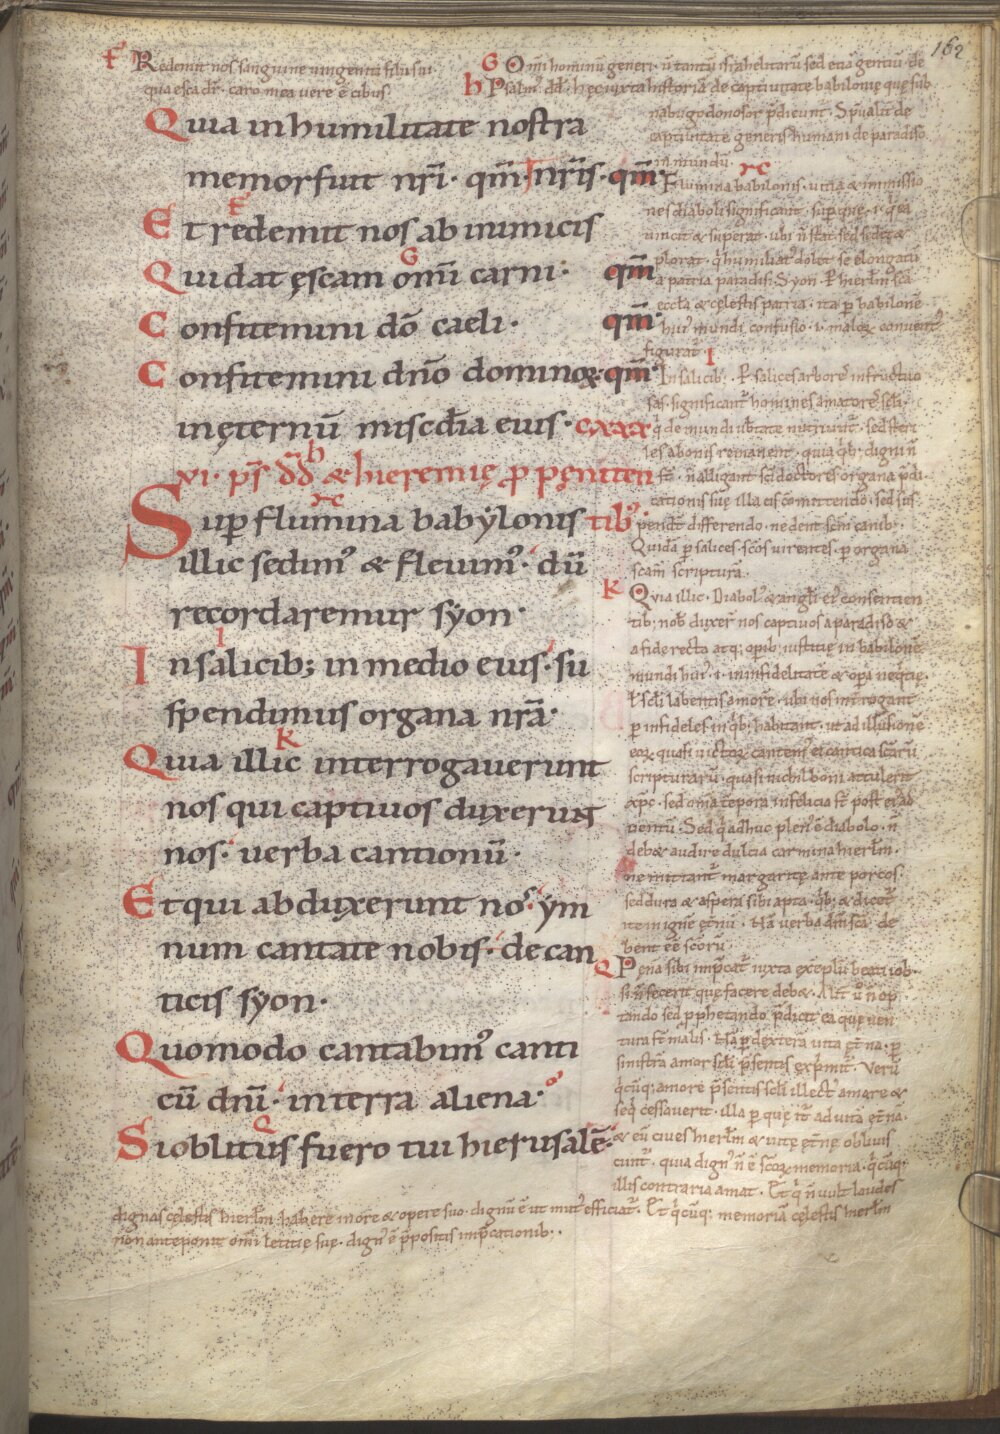 162
F Redemit nos sanguine unigeniti filii sui
quia esca dr̄. caro mea vere ē cibus.
G Omni hominū generi. n̄ tantū israhelitarū sed etiā gentiū. de
h Psalm' dd̄. hęc iuxta historiā de captivitate babilonię que sub
nabugodonosor p̄dicunt. Spūalit̄ de
captivitate generis humani de paradiso
in mundū.
Quia in humilitate nostra
memor fuit nr̄i. qm̄ nr̄is. qm̄
Et redemit nos ab inimicis
Qui dat ęscam om̄i carni. qm̄
Confitemini dō caeli. qm̄
Confitemini dn̄o dominoꝝ. qm̄
in ęternū miscd̄ia eius. cxxx
vi. ps̄ dd̄ & hieremię ꝓ pęniten
tib'
Sup flumina babylonis
illic sedim' & flevim'. dū
recordaremur syon.
In salicib; in medio eius. su
spendimus organa nr̄a.
Quia illic interrogaverunt
nos qui captivos duxerunt
nos. verba cantionū.
Et qui abduxerunt nos. ym
num cantate nobis. de can
ticis syon.
Quomodo cantabim' canti
cū dn̄i. in terra aliena.
Si oblitus fuero tui hierusalē.
Flumina babilonis. vitia & immissio
nes diaboli significant. supque. i. q' ea
vincit & superat. ubi n̄ stat sed sedet &
plorat. q' humiliat' dolet se elongatū
a patria paradisi. Syon. & hierlm̄ scā
eccla & cęlestis patria. ita p babilonē
hui' mundi confusio. i. maloꝝ conventꝰ
figurat̄.
I In salicib;. salices arbores infructuo
sas. significant homines amatores scli.
q de mundi ub̄tate nutriunt̄. sed steri
les a bonis remanent. quia q'b; digni n̄
st̄. n̄ alligant sc̄i doctores organa p̄di
cationis suę illa eis cōmittendo. sed sus
pendt̄ differendo. ne dent scm̄ canib;.
Quidā p salices. scōs virentes. p organa
scām scripturā.
K Quia illic. Diabol' & angli ei' consentien
tib; nob̄ duxer̄ nos captivos a paradiso &
a fide recta atq; opib; iustitię in babilonē
mundi hui'. i. in infidelitatē & opa neqtię.
scli labentis amorē. ubi nos int̄rogant
p infideles in q'b; habitant. ut ad illusionē
eoꝝ quasi victoꝝ cantem' ei cantica scārū
scripturarū. quasi nichil boni attulerit
xpc. sed om̄a tēpora infelicia st̄ post ei' ad
ventū. Sed q' adhuc plen' ē diabolo. n̄
deb& audire dulcia carmina hierlm̄.
ne mittant' margaritę ante porcos.
sed dura & aspera sibi apta. q'b; & dicet'
ite in ignē et̄nū. verba dam̄scā de
bent eē scorū.
Q Pęna sibi imp̄cat̄ iuxta exēplū beati iob.
si n̄ fecerit quę facere deb&. n̄ op
tando sed pphetando p̄dicit ea quę ven
tura st̄ malis. p dexterā vita et̄na. p
sinistrā amor scli p̄sentis exp̄mit̄. Verū
q'cūq; amore p̄sentis scli illect' amare &
seq' cessaverit. illa p quę it̄ ad vitā et̄nā.
& eū cives hierlm̄ & vitę et̄nę oblivis
cunt̄. quia dign' n̄ ē scoꝝ memoria. q'cūq;
illis contraria amat. Et q' n̄ vult laudes
dignas cęlestis hierlm̄ habere in ore & opere suo. dignū ē ut mut' efficiat̄. Et q'cūq; memoriā cęlestis hierlm̄
non anteponit om̄i lętitię suę. dign' ē p̄positis imp̄cationib;.